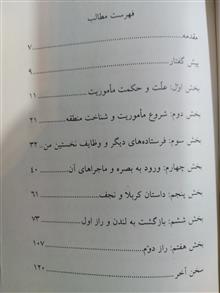 فهرست مطالب
مقدمه ........................ ۷
پیش گفتار ........................ ۹
بخش اوّل: علّت و حکمت مأموریت ........................ ۱۱
بخش دوم: شروع مأموریت و شناخت منطقه ........................ ۲۱
بخش سوم: فرستاده‌های دیگر و وظایف نخستین من.. ۳۲
بخش چهارم: ورود به بصره و ماجراهای آن ........................ ۴۰
بخش پنجم: داستان کربلا و نجف ........................ ۶۱
بخش ششم: بازگشت به لندن و راز اول ........................ ۷۳
بخش هفتم: راز دوّم ........................ ۱۰۷
سخن آخر ........................ ۱۲۰